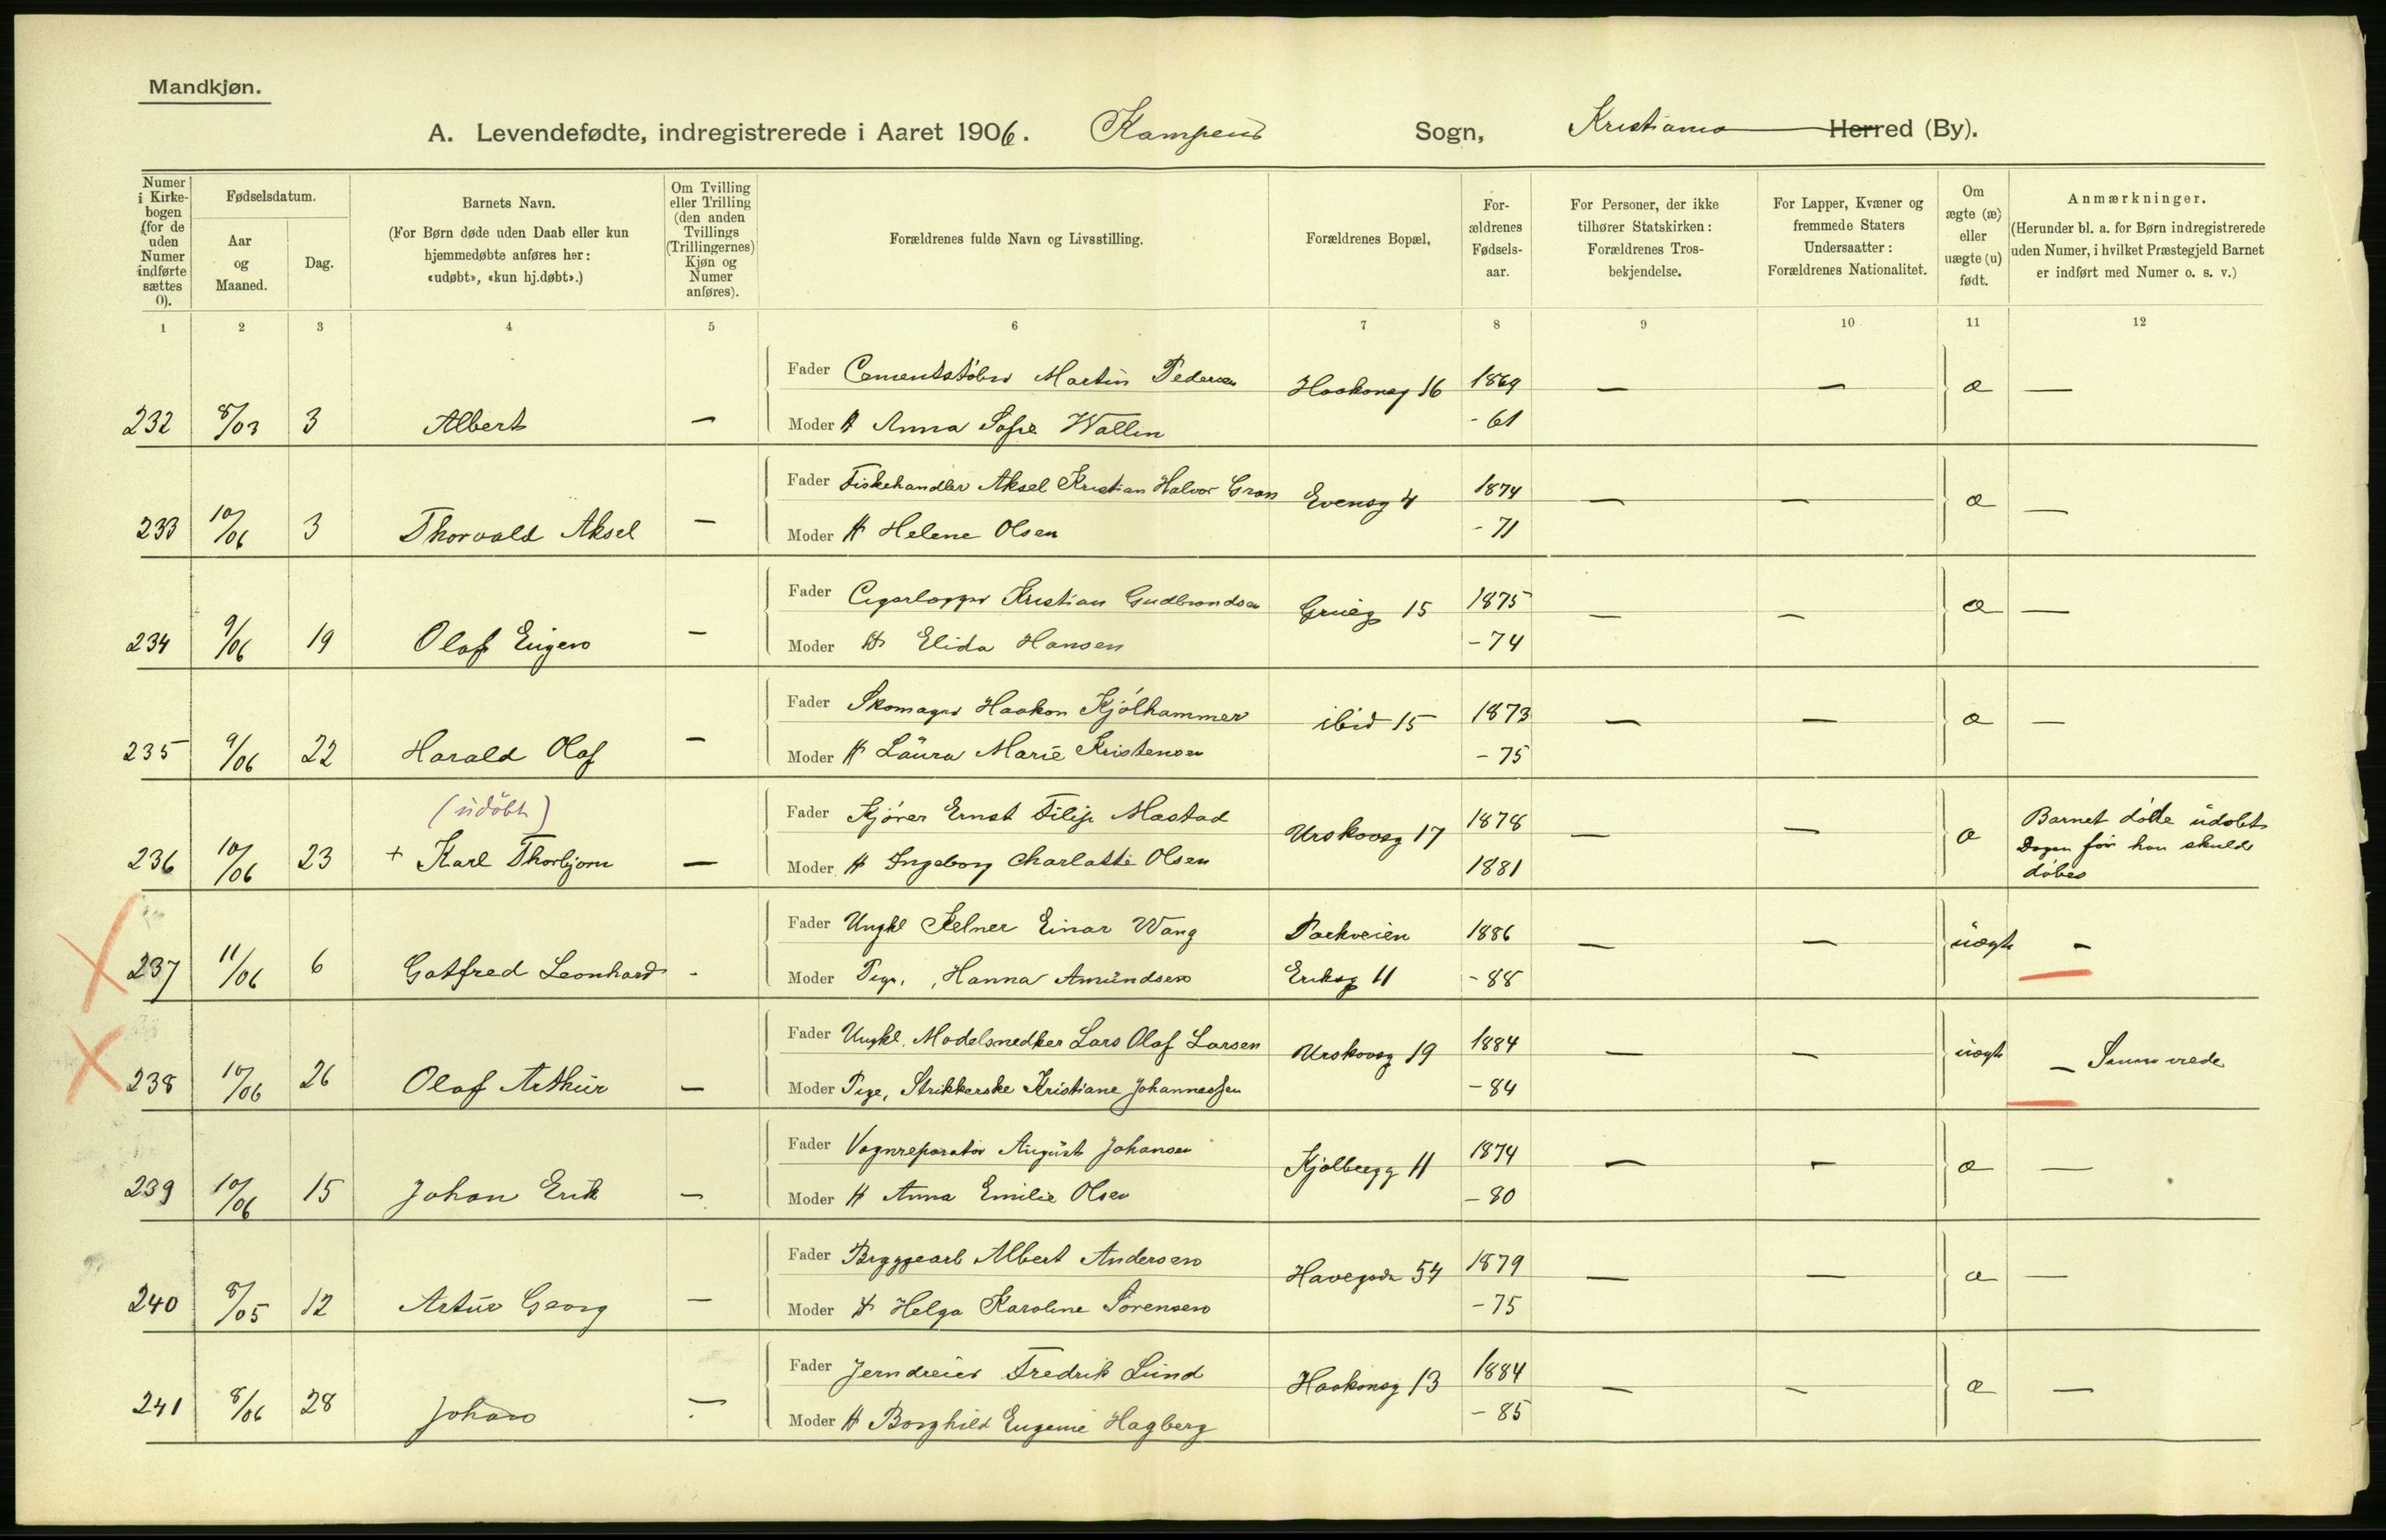 Mandkjøn.
A. Levendefødte, indregistrerede i Aaret 1906. Kampens Sogn, Kristiania Herred (By).
Numer i Kirkebogen (for de uden Numer indførte sættes 0).
Fødselsdatum.
Aar og Maaned.
Dag.
Barnets Navn.
(For Børn døde uden Daab eller kun hjemmedøbte anføres her: «udøbt», «kun hj.døbt».)
Om Tvilling eller Trilling (den anden Tvillings (Trillingernes) Kjøn og Numer anføres).
Forældrenes fulde Navn og Livsstilling.
Forældrenes Bopæl,
Forældrenes Fødselsaar.
For Personer, der ikke tilhører Statskirken: Forældrenes Trosbekjendelse.
For Lapper, Kvæner og fremmede Staters Undersaatter: Forældrenes Nationalitet.
Om ægte (æ) eller uægte (u) født.
Anmærkninger.
(Herunder bl. a. for Børn indregistrerede uden Numer, i hvilket Præstegjeld Barnet er indført med Numer o. s. v.)
1 2 3 4 5 6 7 8 9 10 11 12
Fader Cementstøber Martin Pedersen Haakonsg 16 1869 — — æ —
232 8/03 3 Albert — Moder H Anna Sofie Wallin - 61
Fader Fiskehandler Aksel Kristian Halvor Gran Evensg 4 1874 — — æ —
233 10/06 3 Thorvald Aksel — Moder H Helene Olsen - 71
Fader Cigarlægger Kristian Gudbrandsen Grüeg 15 1875 — — æ —
234 9/06 19 Olaf Eugen — Moder H Elida Hansen - 74
Fader Skomager Haakon Kjølhammer ibid 15 1873 — — æ —
235 9/06 22 Harald Olaf — Moder H Laura Marie Kristensen - 75
(udøbt)
Fader Kjører Ernst Filip Mastad Urskovsg 17 1878 — — æ Barnet døde udøbt
Dagen før han skulde
døbes
236 10/06 23 + Karl Thorbjørn — Moder H Ingeborg Charlotte Olsen 1881
Fader Ungkl Kelner Einar Wang Parkveien 1886 — — uægte -
237 11/06 6 Gotfred Leonhard - Moder Pige, Hanna Amundsen Eriksg 11 - 88
Fader Ungkl. Modelsnedker Lars Olaf Larsen Urskovsg 19 1884 — — uægte —
238 10/06 26 Olaf Arthur — Moder Pige, Strikkerske Kristiane Johannessen - 84
Fader Vognreparatør August Johansen Kjølbergg 11 1874 — — æ —
239 10/06 15 Johan Erik — Moder H Anna Emilie Olsen - 80
Fader Bryggearb Albert Andersen Havegada 54 1879 — — æ —
240 8/05 12 Artur Georg — Moder H Helga Karoline Sørensen - 75
Fader Jerndreier Fredrik Lund Haakonsg 13 1884 — — æ —
241 8/06 28 Johan — Moder H Borghild Eugenie Hagberg - 85